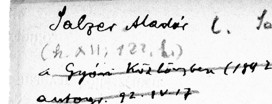 Salzer Aladár l. Sa
(k. XII, 122. l.)
a Győri Közlönyben (1892
autogr. 92. IV. 17